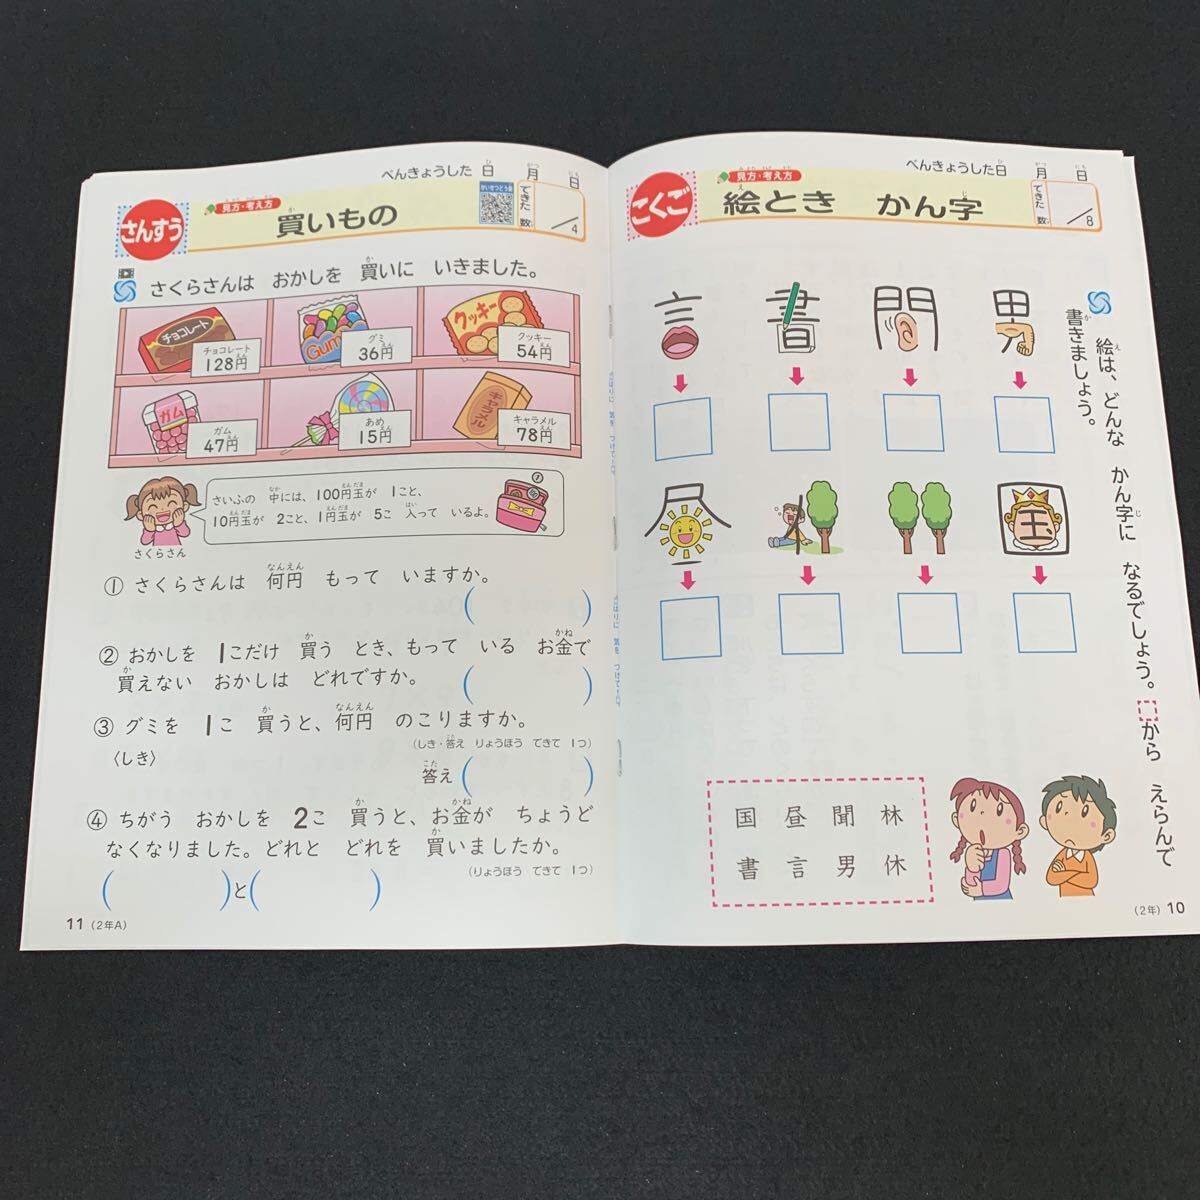 べんきょうした日 月 日
さんすう
見方・考え方
買いもの
かいせつどう画
できた数 /4
さくらさんは おかしを 買いに いきました。
チョコレート
チョコレート
128円
Gum
グミ
36円
クッキー
クッキー
54円
ガム
ガム
47円
あめ
15円
キャラメル
キャラメル
78円
さいふの 中には、100円玉が 1こと、
10円玉が 2こと、1円玉が 5こ 入って いるよ。
さくらさん
① さくらさんは 何円 もって いますか。
( )
② おかしを 1こだけ 買う とき、もって いる お金で
買えない おかしは どれですか。 ( )
③ グミを 1こ 買うと、何円 のこりますか。
(しき・答え りょうほう できて 1つ)
〈しき〉
答え ( )
④ ちがう おかしを 2こ 買うと、お金が ちょうど
なくなりました。どれと どれを 買いましたか。
(りょうほう できて 1つ)
( )と( )
11 (2年A)
べんきょうした日 月 日
こくご
見方・考え方
絵とき かん字
できた数 /8
絵は、どんな かん字に なるでしょう。□から えらんで
書きましょう。
国 昼 聞 林
書 言 男 休
(2年) 10